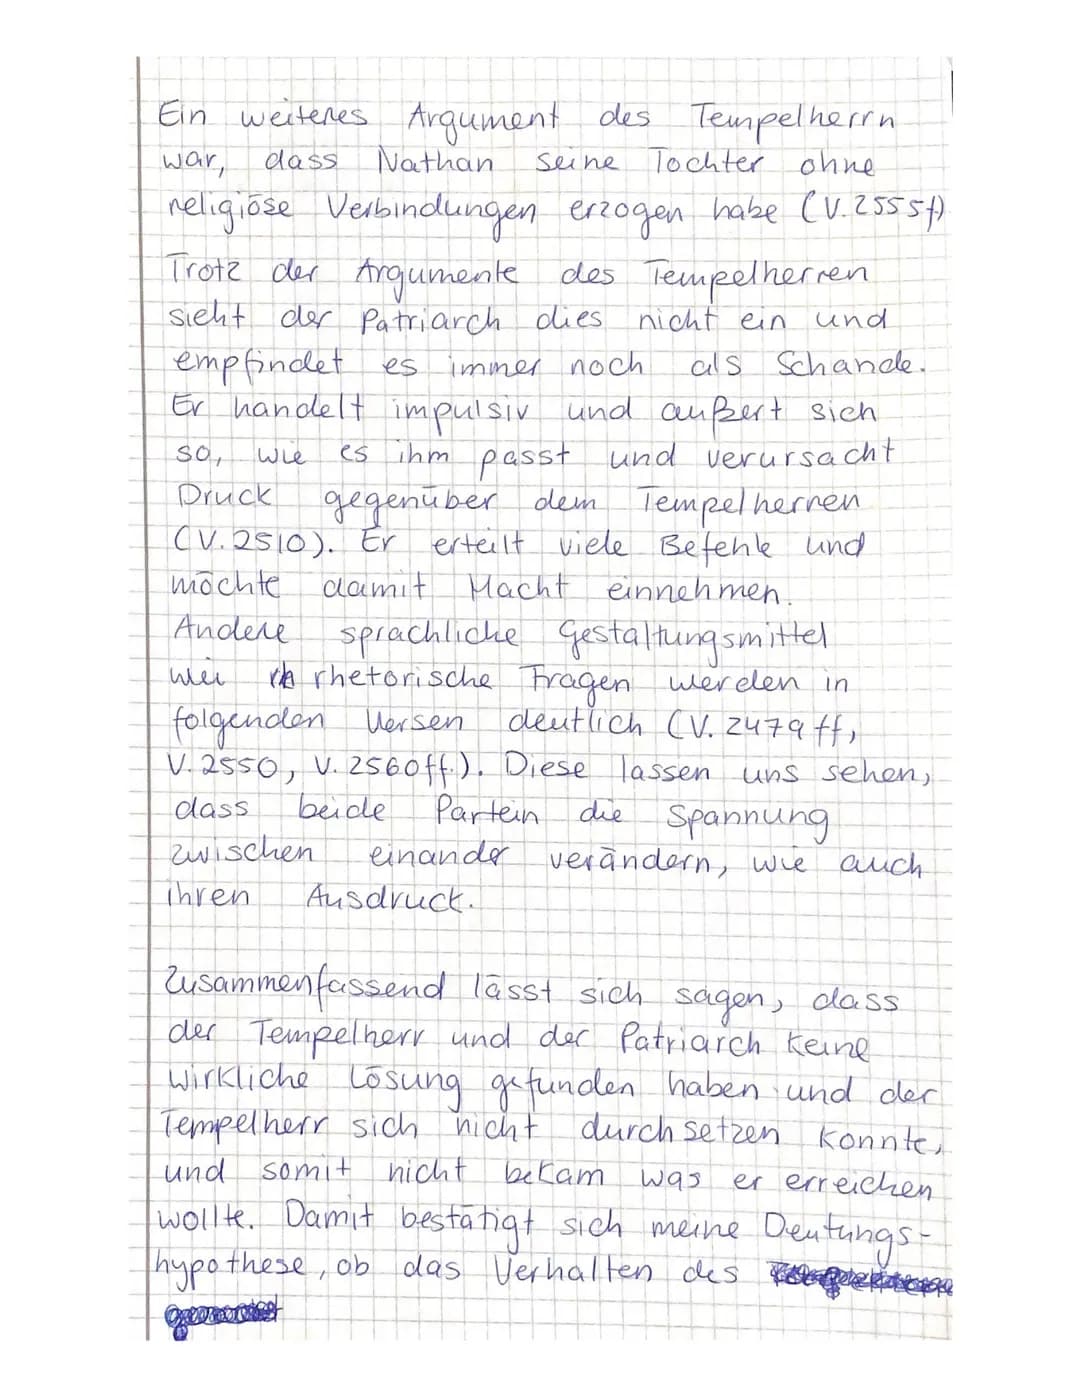 Ein weiteres Argument des Tempelherrn
war, dass Nathan seine Tochter ohne
religiöse Verbindungen erzogen habe (V. 2555f)
Trotz der Argumente des Tempelherren
sieht der Patriarch dies nicht ein und
empfindet es immer noch als Schande.
Er handelt impulsiv und außert sich
so, wie es ihm passt und verursacht
Druck gegenüber dem Tempelherren
(V. 2510). Er erteilt viele Befehle und
möchte damit Macht einnehmen.
Andere sprachliche Gestaltungsmittel
wei rhetorische Fragen werden in
folgenden Versen deutlich (V. 2479 ff,
V. 2550, V. 2560ff.). Diese lassen uns sehen,
dass beide Partein die Spannung
zwischen einander verändern, wie auch
ihren Ausdruck.
Zusammenfassend lässt sich sagen, dass
der Tempelherr und der Patriarch keine
wirkliche Lösung gefunden haben und der
Tempelherr sich nicht durchsetzen konnte,
und somit nicht bekam was er erreichen
wollte. Damit bestätigt sich meine Deutungs-
hypothese, ob das Verhalten des